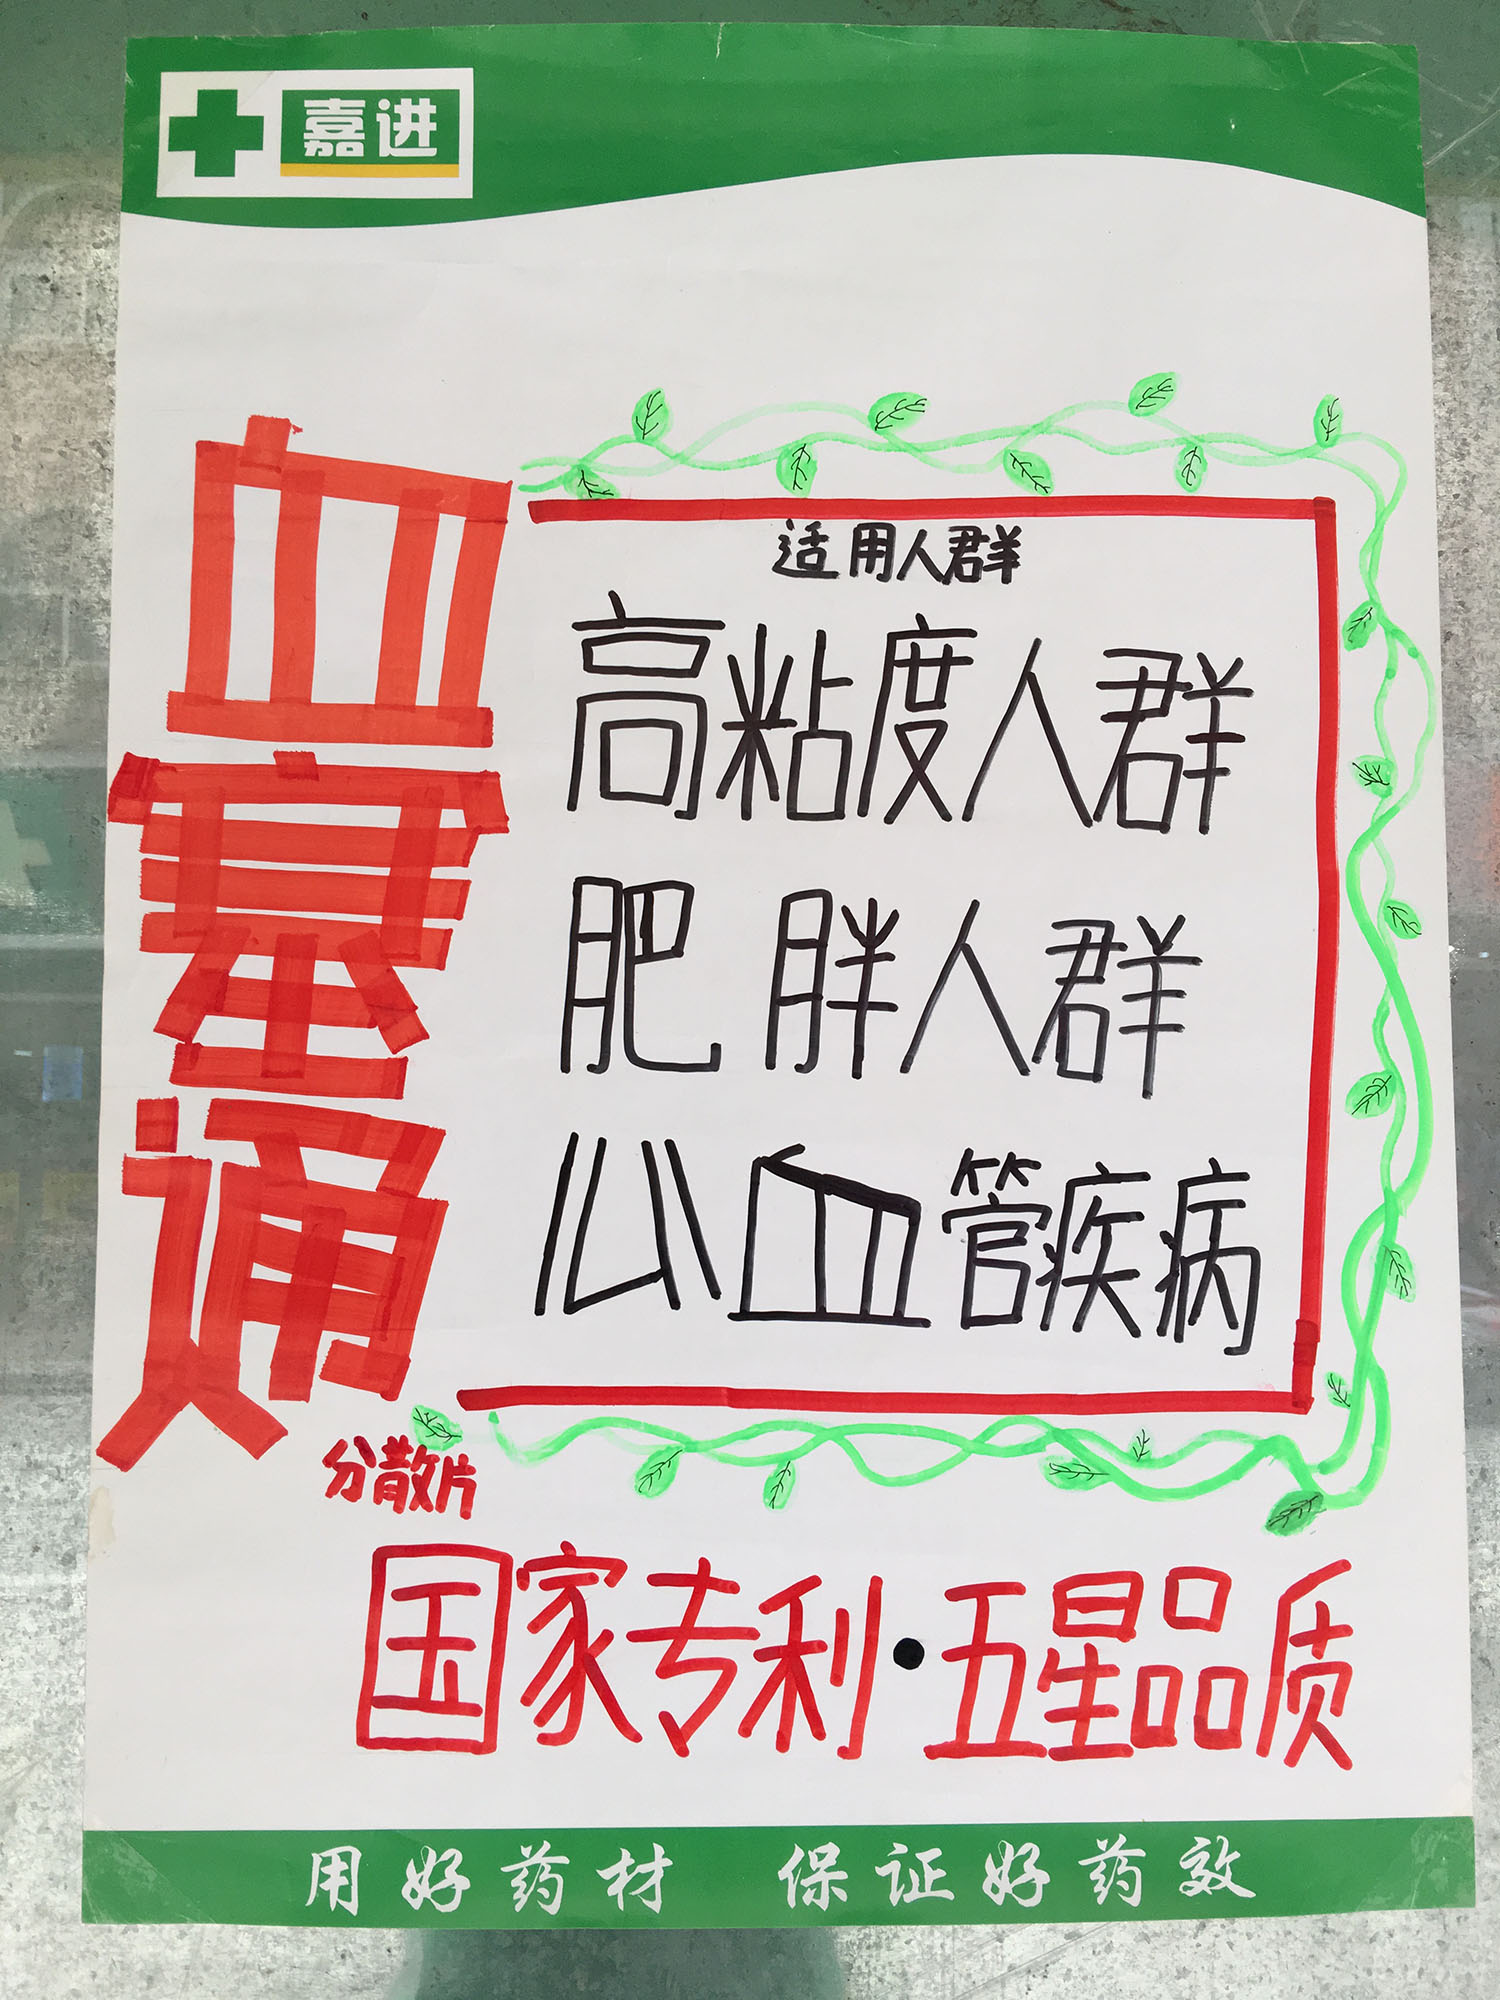 嘉进
血塞通
分散片
适用人群
高粘度人群
肥胖人群
心血管疾病
国家专利·五星品质
用好药材 保证好药效